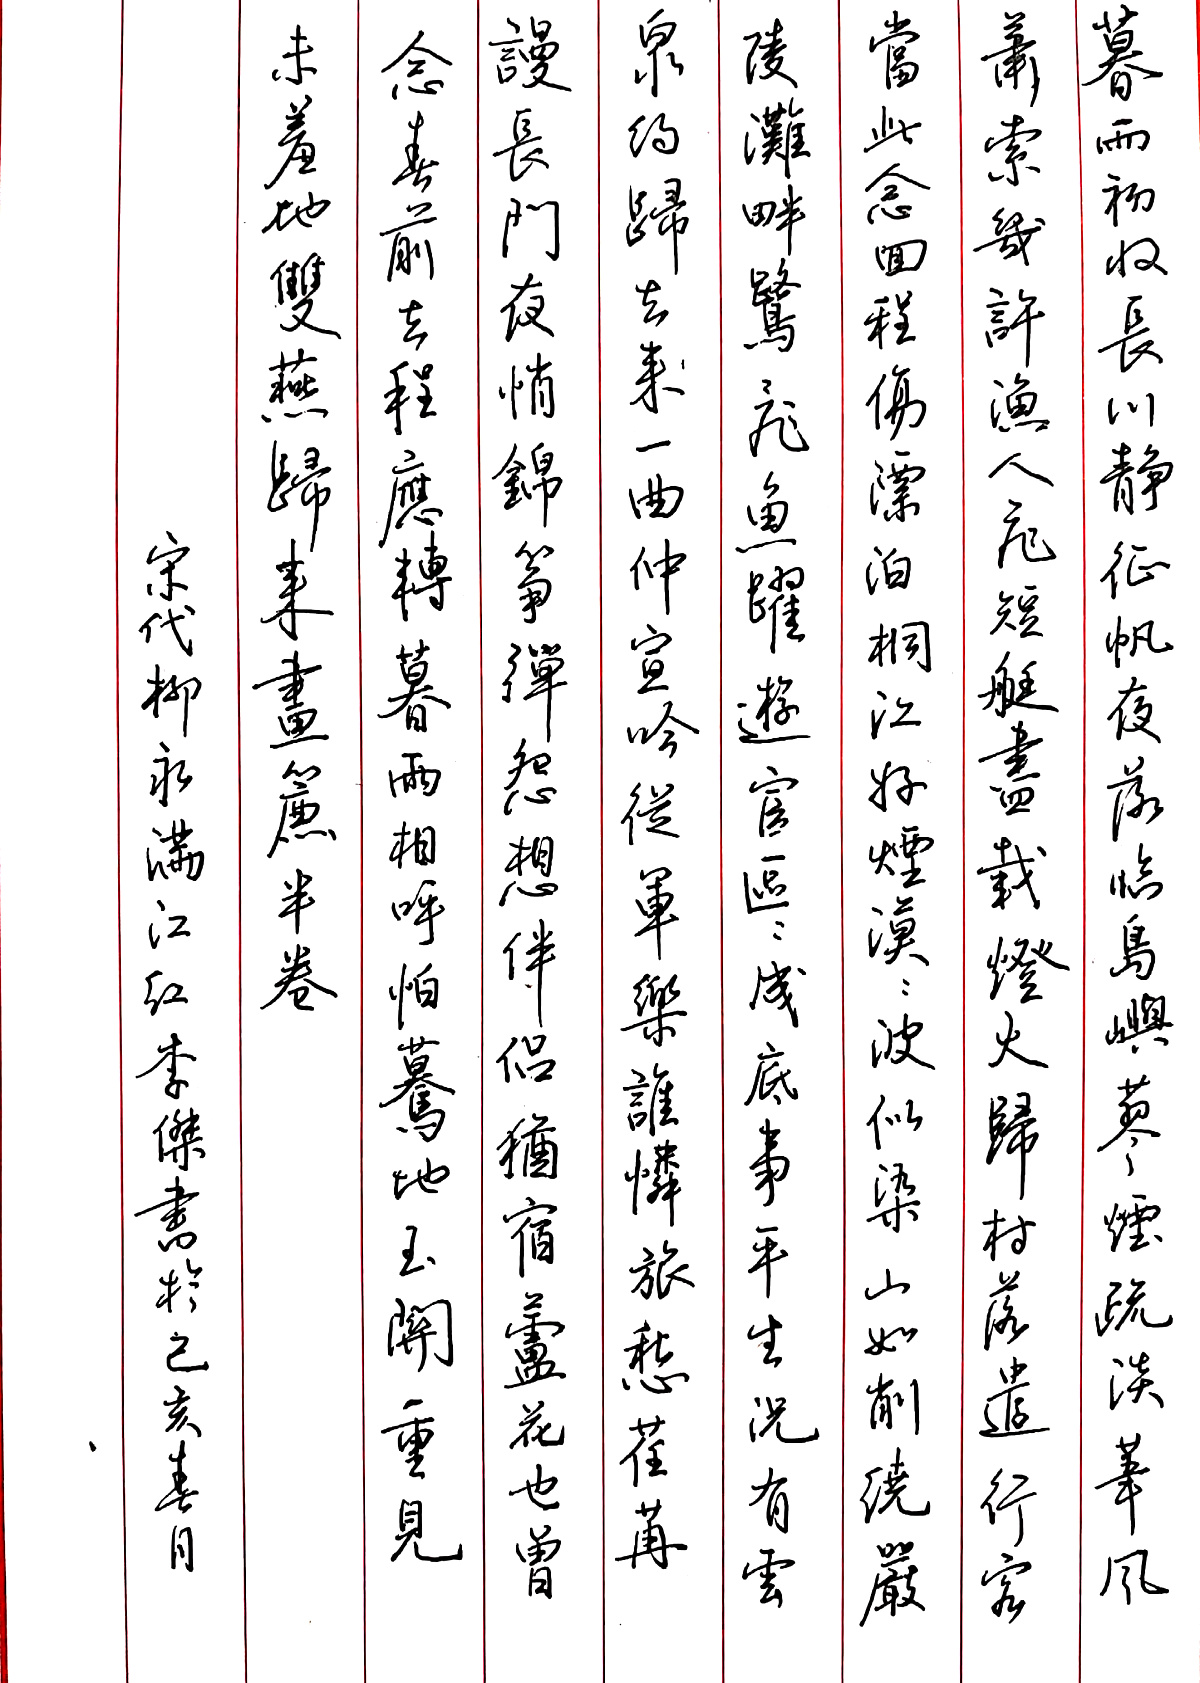 暮雨初收長川静征帆夜落臨島嶼蓼煙疏淡葦風
蕭索幾許漁人飛短艇盡載燈火歸村落遣行客
當此念回程傷漂泊桐江好煙漠〻波似染山如削繞嚴
陵灘畔鷺飛魚躍遊宦區〻成底事平生況有雲
泉約歸去来一曲仲宣吟從軍樂誰憐旅愁荏苒
謾長門夜悄錦箏彈怨想伴侶猶宿蘆花也曾
念春前去程應轉暮雨相呼怕驀地玉關重見
未羞他雙燕歸来畫簾半卷
宋代柳永滿江紅李傑書於己亥春月